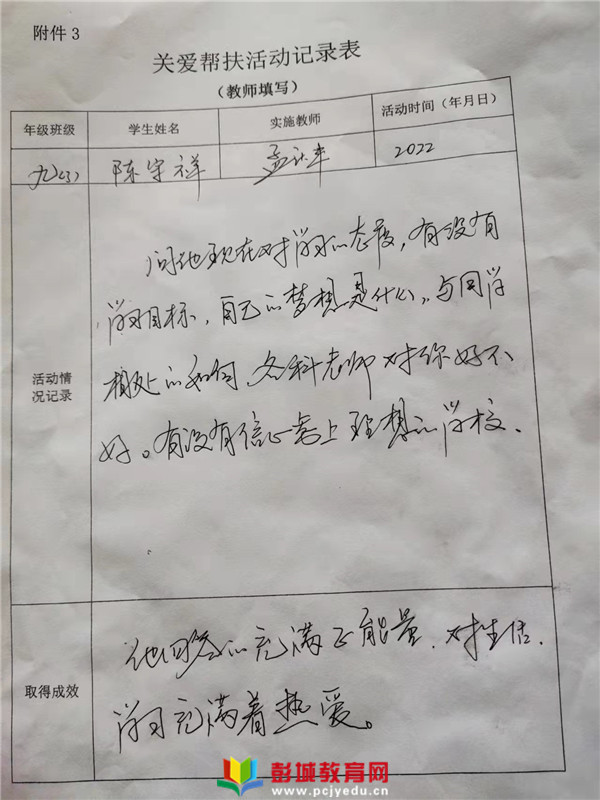 附件 3
关爱帮扶活动记录表
（教师填写）
年级班级 学生姓名 实施教师 活动时间（年月日）
九(3) 陈宇祥 2022
问他现在对学习的态度，有没有
学习目标，自己的梦想是什么。与同学
活动情况记录
相处的如何，各科老师对你好不
好。有没有信心考上理想的学校.
他回答的充满正能量.对生活.
取得成效
学习充满着热爱。
彭城教育网
www.pcjyedu.cn